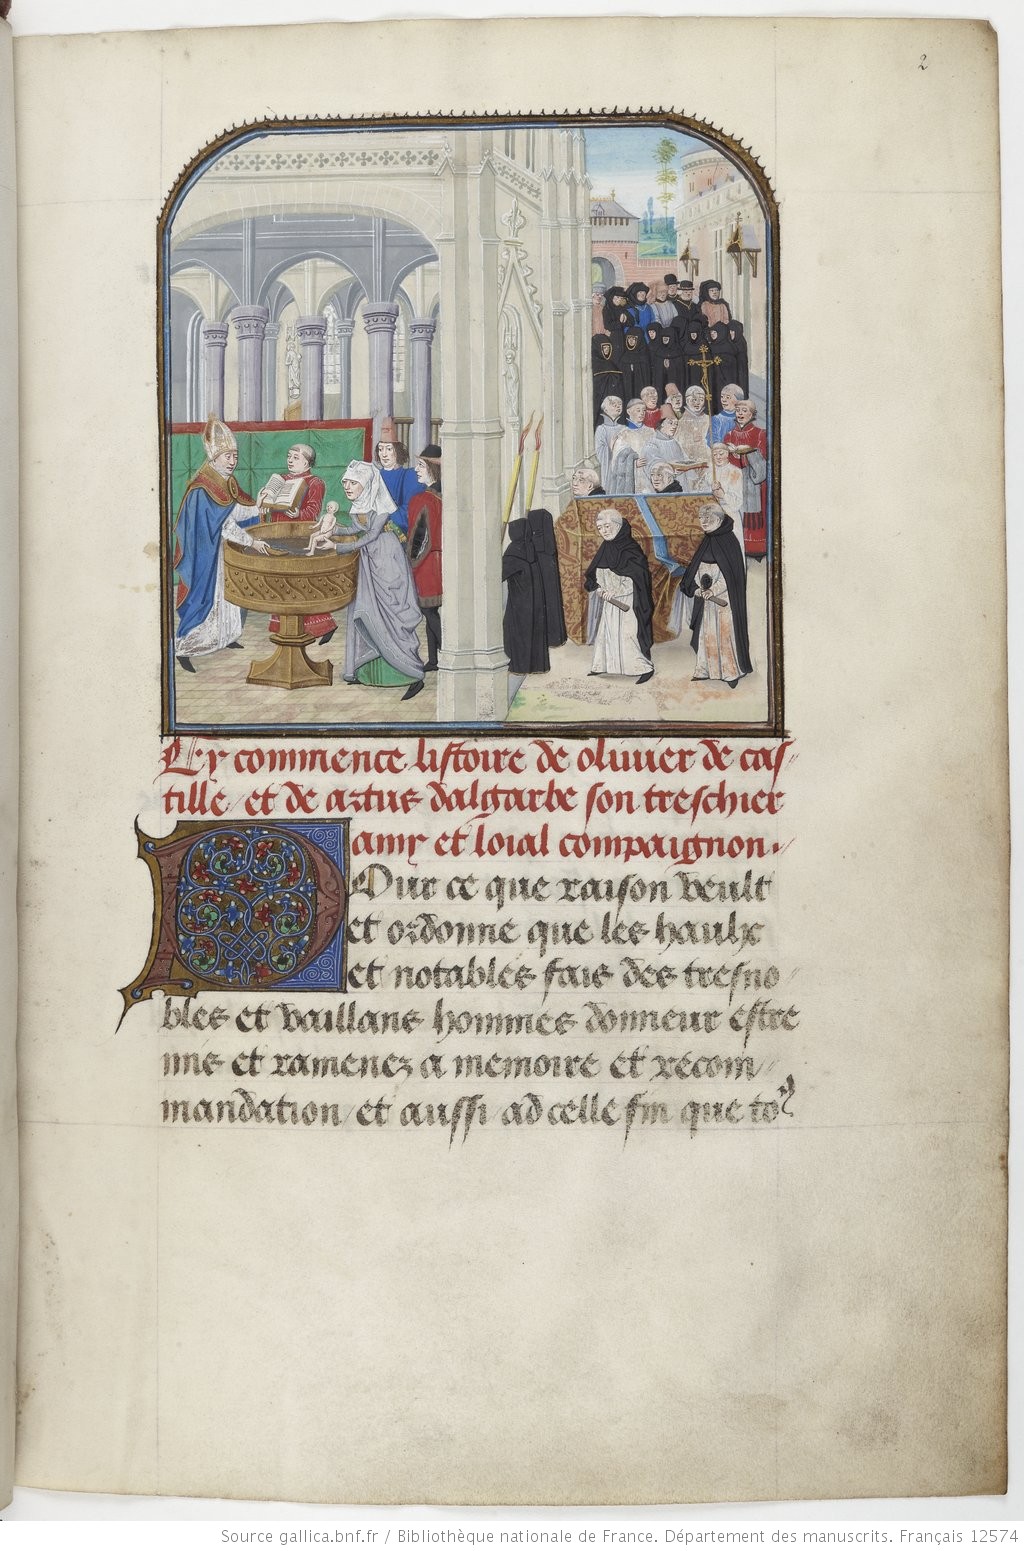 2
Cy commence listoire de oliuier de cas
tille / et de artus dalgarbe son treschier
amy et loial compaignon.
Pour ce que raison veult
et ordonne que les haulx
et notables fais des tresno
bles et vaillans hommes donneur estre
mis et ramenez a memoire et recom
mandation / et aussi ad celle fin que to9
Source gallica.bnf.fr / Bibliothèque nationale de France. Département des manuscrits. Français 12574